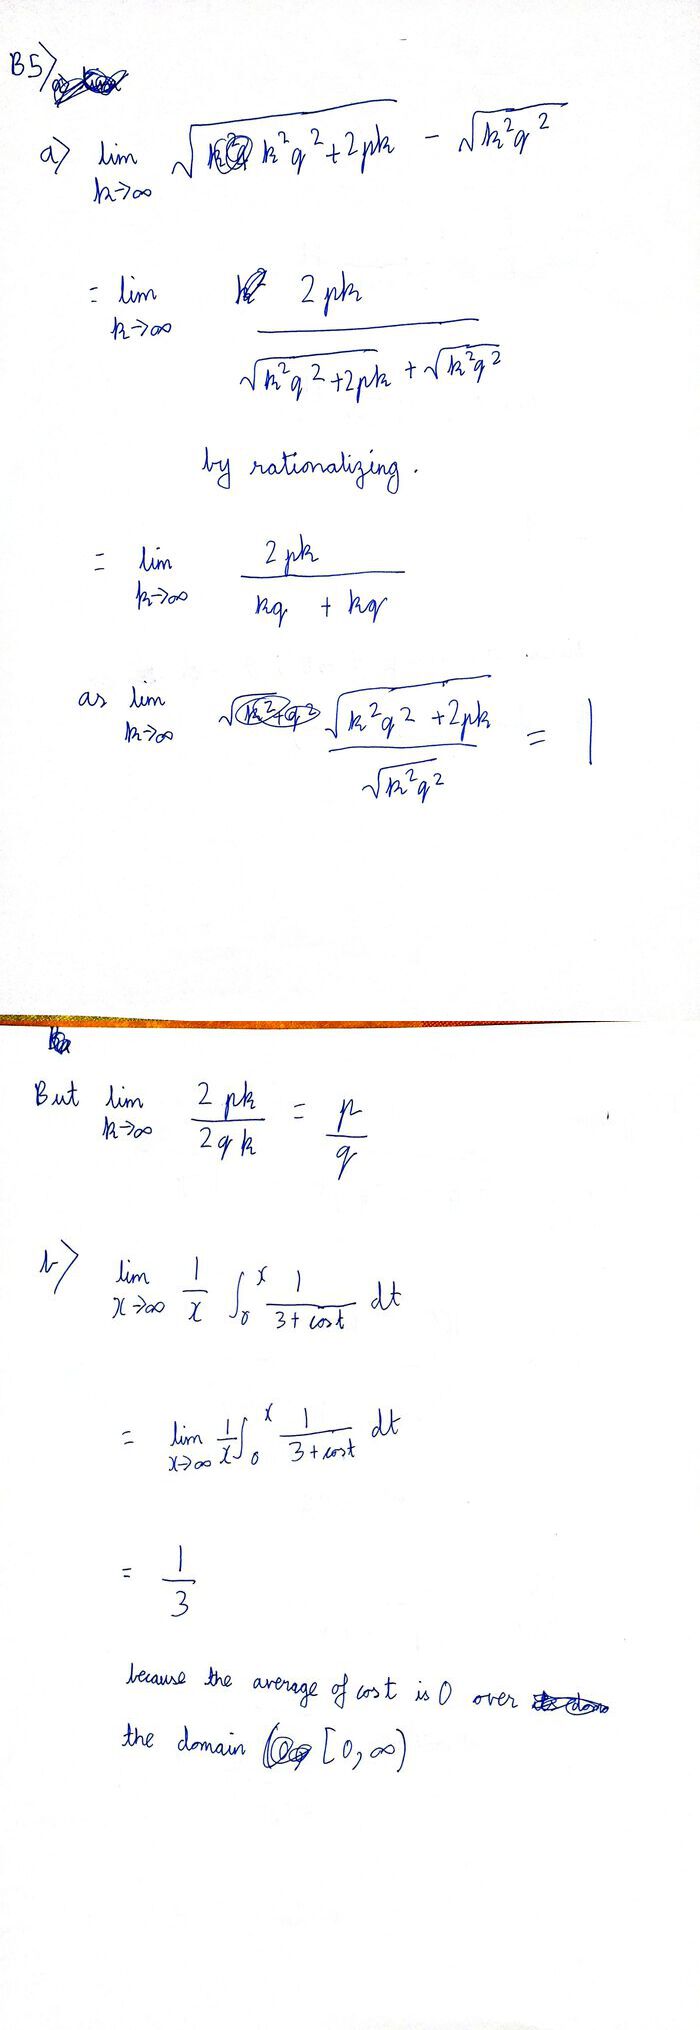 B5)
a) lim k→∞ √(k²q² + 2pk) − √(k²q²)
= lim k→∞ 2pk / (√(k²q² + 2pk) + √(k²q²))
by rationalizing.
= lim k→∞ 2pk / (kq + kq)
as lim k→∞ √(k²q² + 2pk) / √(k²q²) = 1
But lim k→∞ 2pk / 2qk = p/q
b) lim x→∞ 1/x ∫₀ˣ 1/(3 + cost) dt
= lim x→∞ 1/x ∫₀ˣ 1/(3 + cost) dt
= 1/3
because the average of cost is 0 over
the domain [0, ∞)